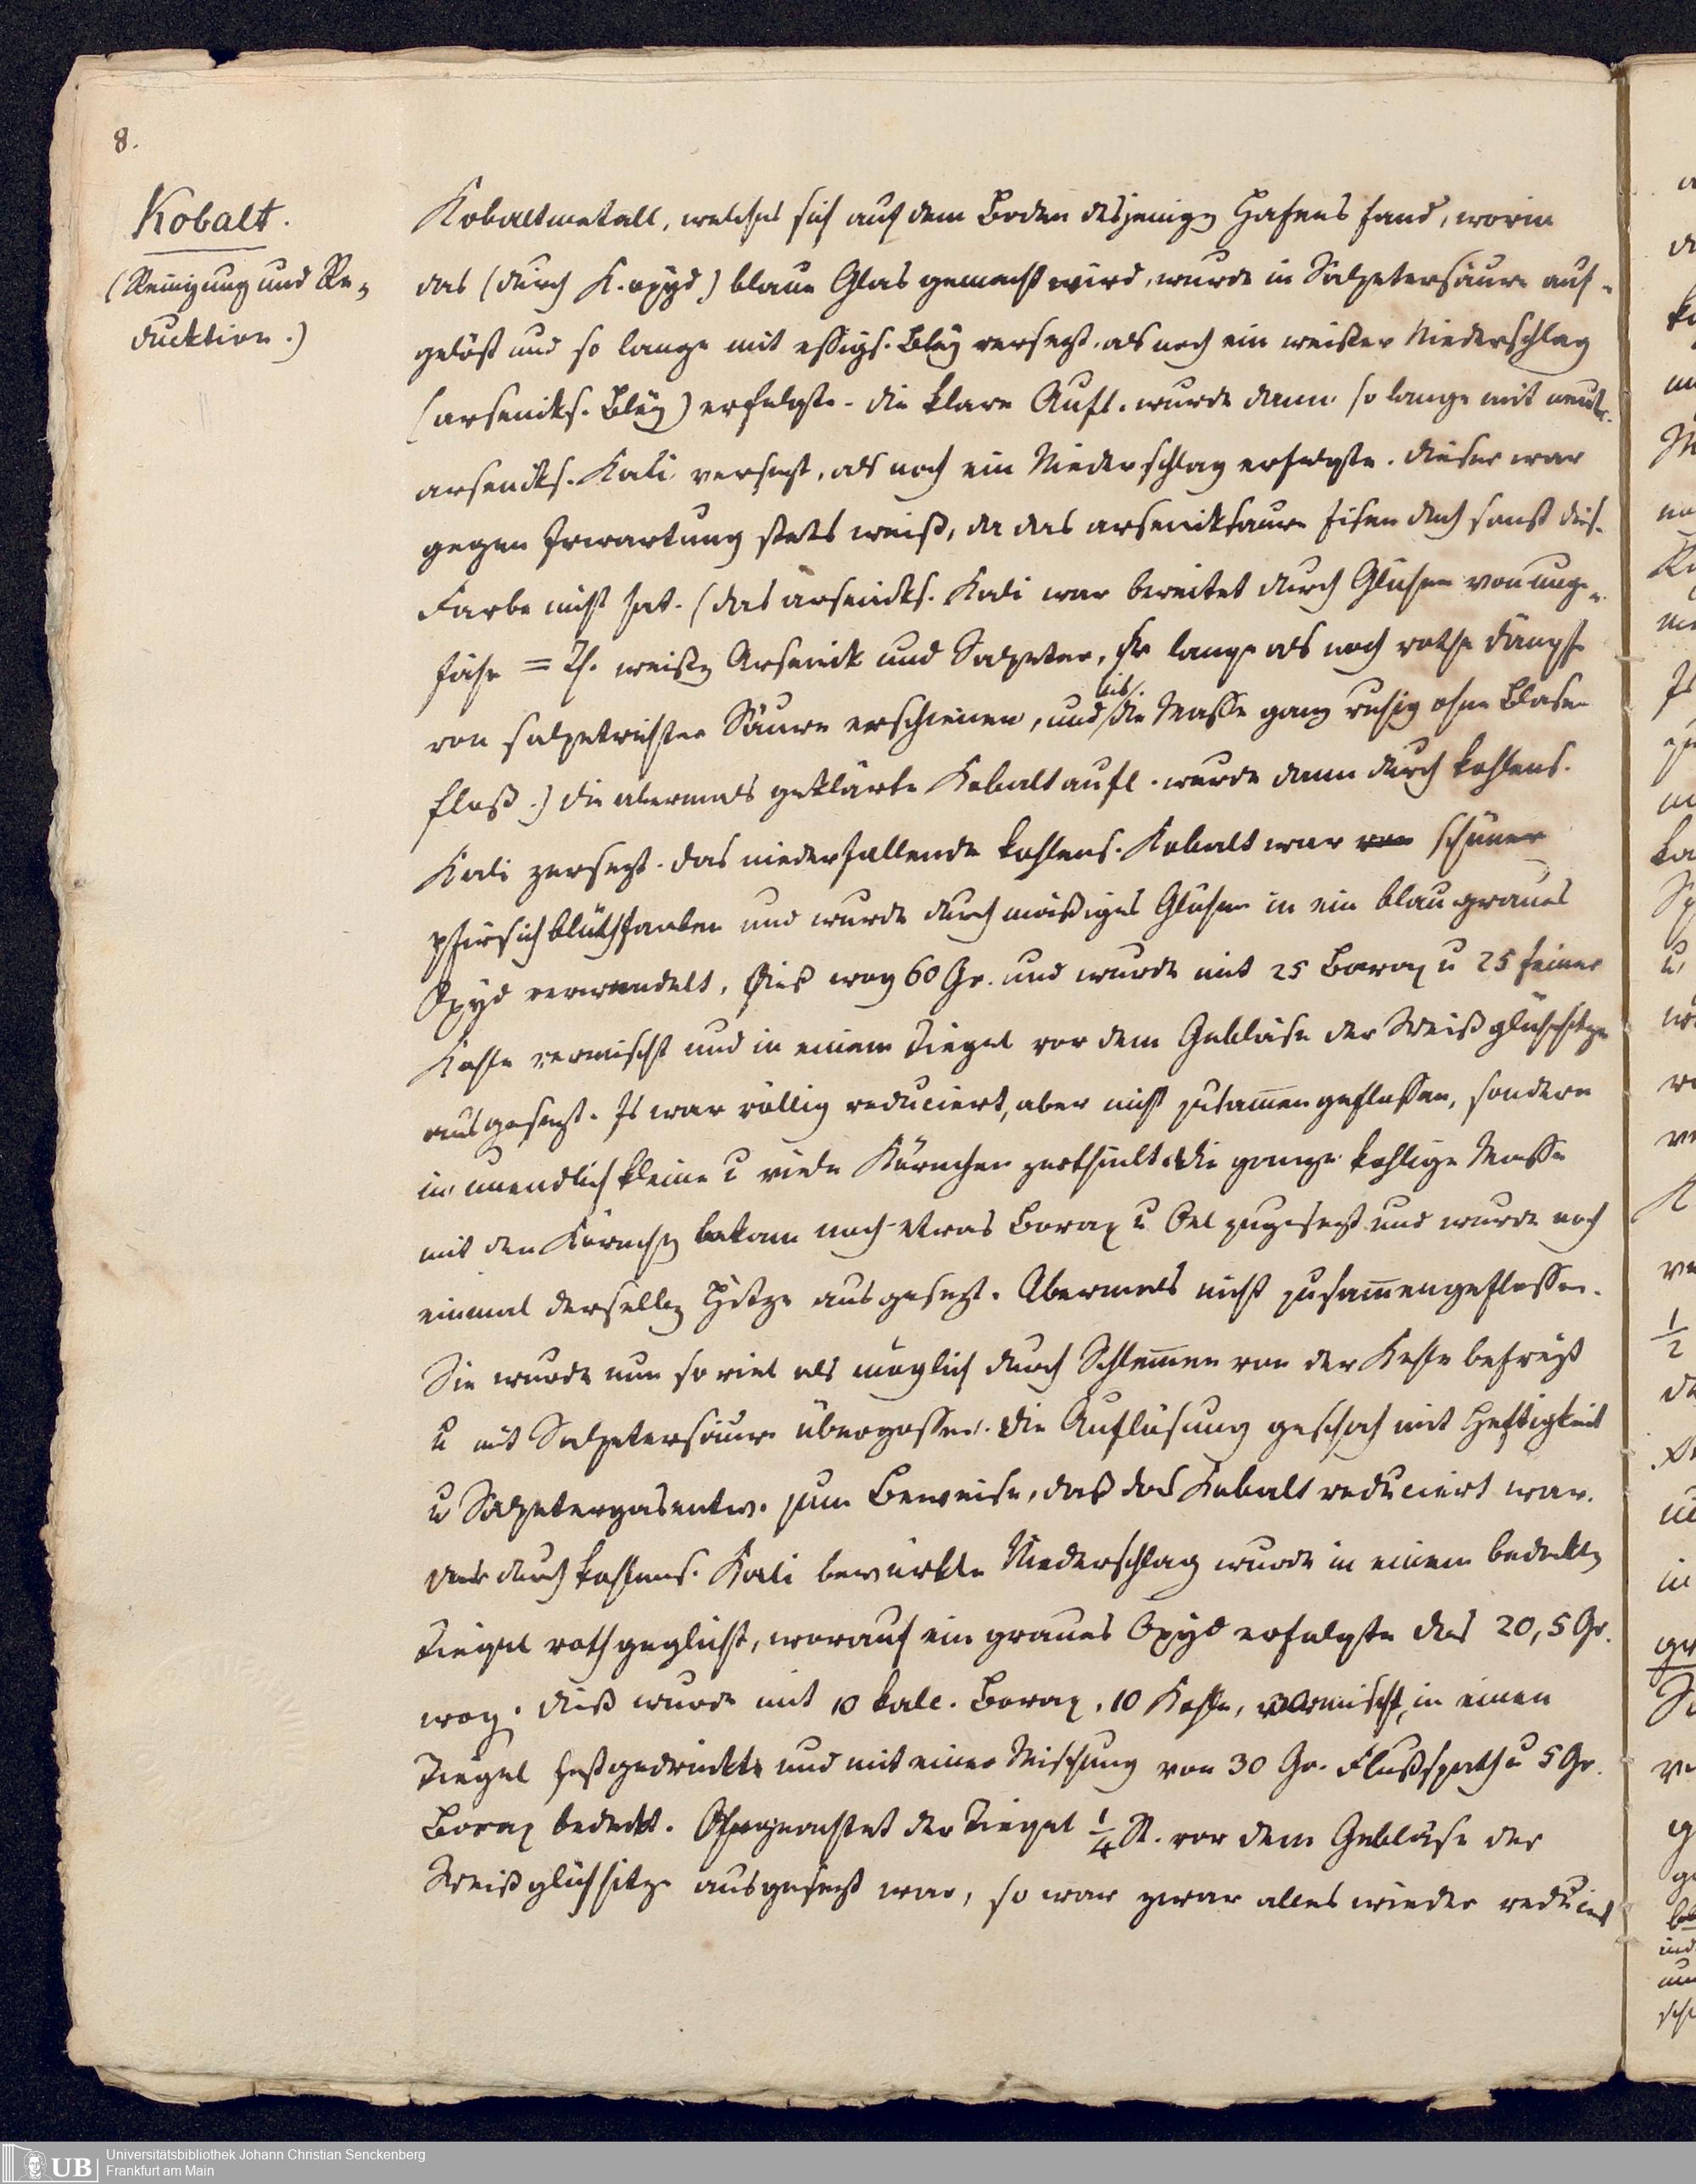 8.
Kobalt.
(Reinigung und Re-
duktion.)
Kobaltmetall, welches sich auf dem Boden desjenigen Hafens fand, worin
das (durch K. oxyd) blaue Glas gemacht wird, wurde in Salpetersäure auf-
gelöst und so lange mit essigs. Bley versezt, als noch ein weißer Niederschlag
(arseniks. Bley) erfolgte. Die klare Aufl. wurde dann so lange mit neutr.
arseniks. Kali versezt, als noch ein Niederschlag erfolgte. Dieser war
gegen Erwartung stets weiß, da das arseniksaure Eisen doch sonst dies.
Farbe nicht hat. (Das arseniks. Kali war bereitet durch Glühen von unge-
fähr = Th. weißen Arsenik und Salpeter, so lange als noch rothe Dämpfe
von salpetrichter Säure erschienen, und bis die Masse ganz ruhig ohne Blasen
floß.) Die abermals geklärte Kobaltaufl. wurde dann durch kohlens.
Kali zersezt. Das niederfallende kohlens. Kobalt war von schöner
pfirsichblüthfarben und wurde durch mäßiges Glühen in ein blaugraues
Oxyd verwandelt. Dieß wog 60 Gr. und wurde mit 25 Borax u 25 feiner
Kohle vermischt und in einem Tiegel vor dem Gebläse der Weißglühhitze
ausgesezt. Es war völlig reduciert, aber nicht zusammengeflossen, sondern
in unendlich kleine u viele Körnchen zertheilt. Die ganze kohlige Masse
mit den Körnchen bekam noch etwas Borax u Oel zugesezt und wurde noch
einmal derselben Hitze ausgesezt. Abermals nicht zusammengeflossen.
Sie wurde nun so viel als möglich durch Schlemmen von der Kohle befreyt
u mit Salpetersäure übergossen. Die Auflösung geschah mit Heftigkeit
u Salpetergasentw. zum Beweise, daß das Kobalt reduciert war.
Der durch kohlens. Kali bewürkte Niederschlag wurde in einem bedekten
Tiegel rothgeglüht, worauf ein graues Oxyd erfolgte das 20,5 Gr.
wog. Dieß wurde mit 10 calc. Borax, 10 Kohle, vermischt, in einen
Tiegel festgedrückt und mit einer Mischung von 30 Gr. Flußspath u 5 Gr.
Borax bedekt. Ohngeachtet der Tiegel 1/4 St. vor dem Gebläse der
Weißglühhitze ausgesezt war, so war zwar alles wieder reduciert
Universitätsbibliothek Johann Christian Senckenberg
Frankfurt am Main
UB